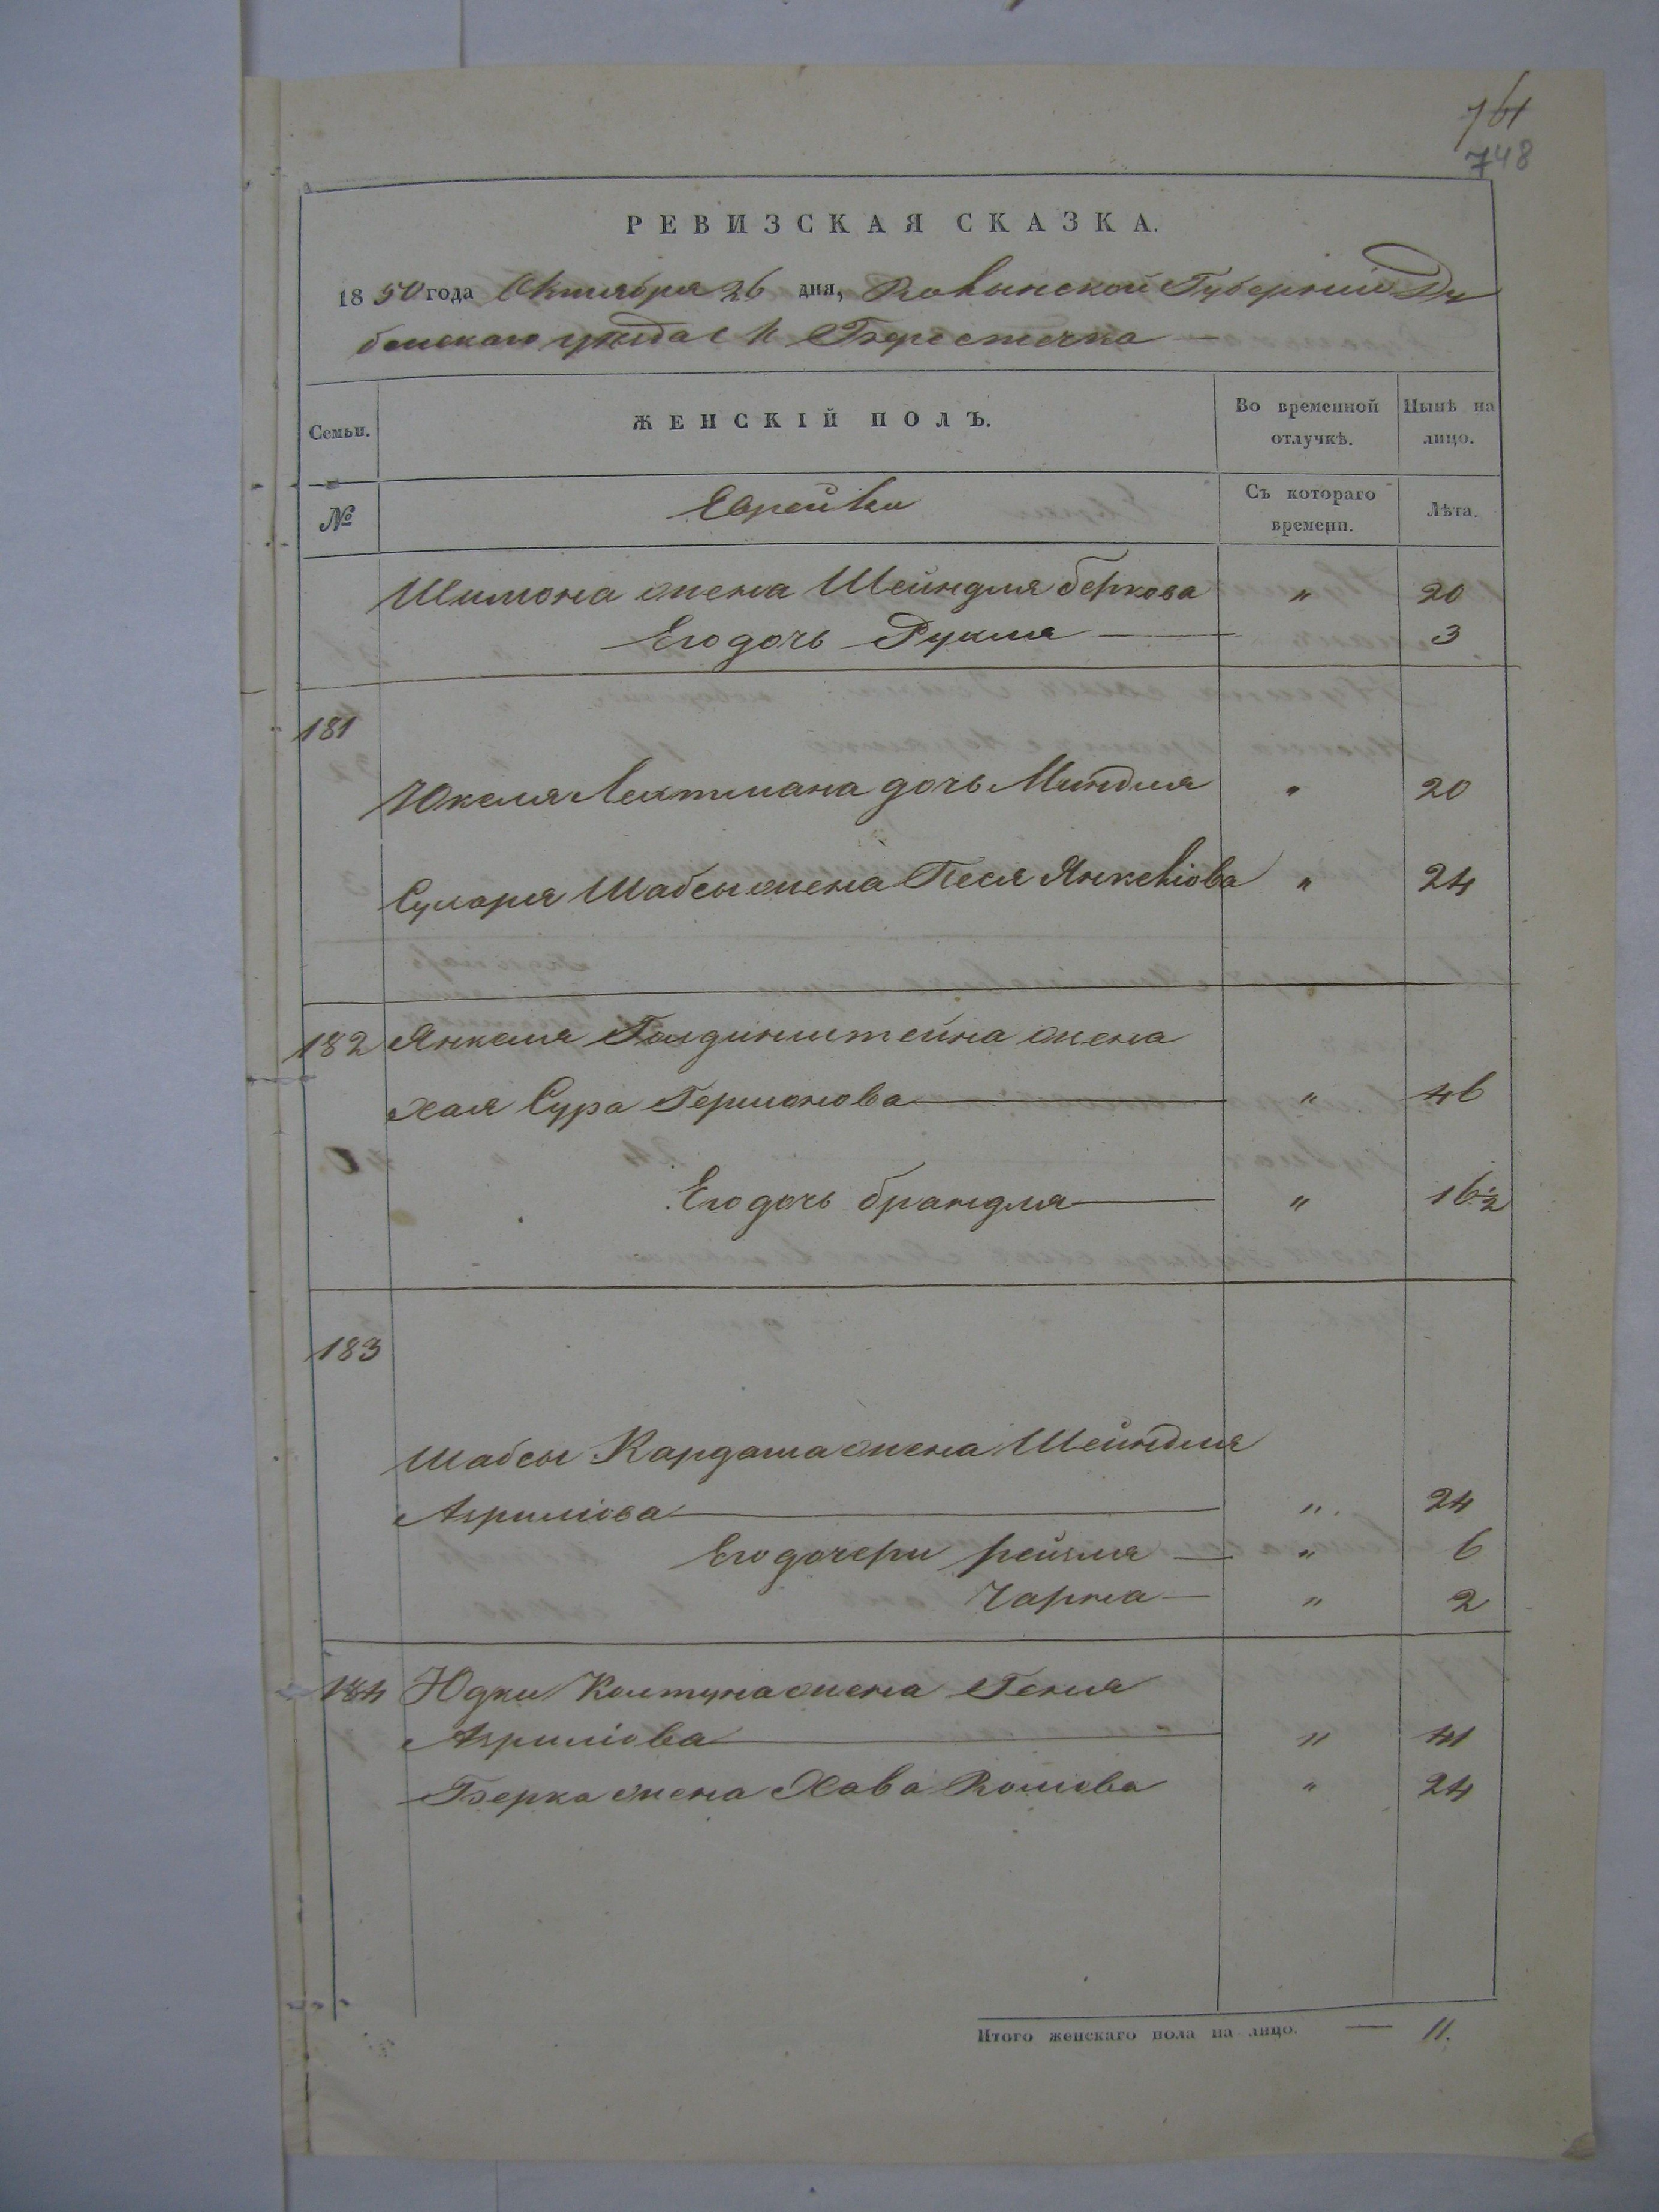 761
748
РЕВИЗСКАЯ СКАЗКА.
1850 года Октября 26 дня, Волынской Губерніи Ду
бенскаго уезда с М Берестечка —
Семьи. ЖЕНСКІЙ ПОЛЪ. Во временной отлучкѣ. Нынѣ на лицо.
№ Еврейки Съ котораго времени. Лѣта.
Шимона жена Шейндля Беркова " 20
Его дочь Рухля — 3
181
Юкеля Лехтмана дочь Миндля " 20
Сухаря Шабсы жена Песя Янкеліова " 24
182 Янкеля Голдинштейна жена
Хая Сура Гершонова — " 46
Его дочь Брандля — " 16½
183
Шабсы Кардаша жена Шейндля
Азриліова — " 24
Его дочери Рейзля — " 6
Чарна — " 2
184 Юдки Колтуна жена Геня
Азриліова — " 41
Берка жена Хава " 24
Итого женскаго пола на лицо. — 11.